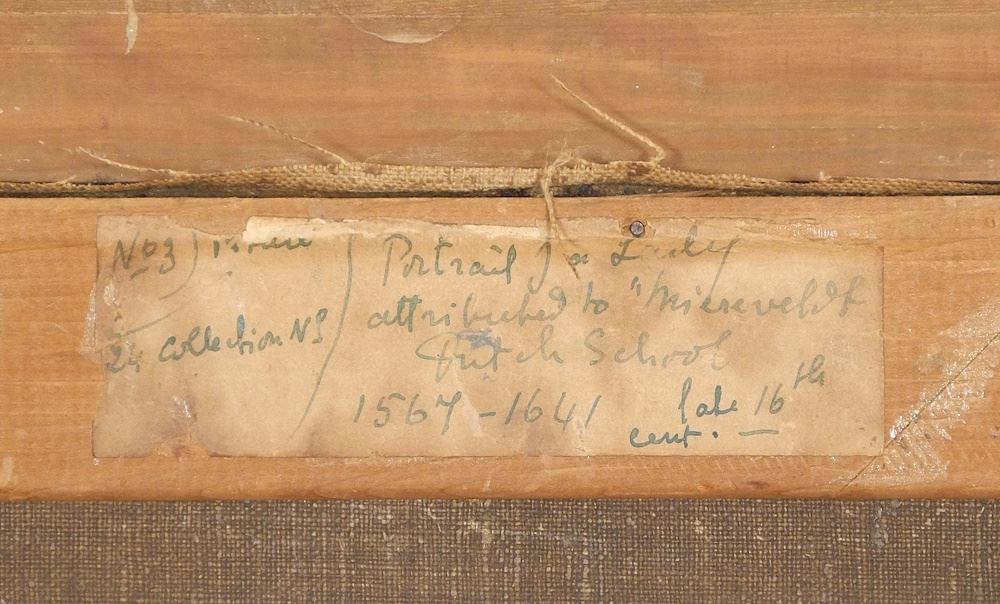 No 3)
24 Collection No
Portrait of a Lady
attributed to "Miereveldt
Dutch School
1567-1641 late 16th
cent. —